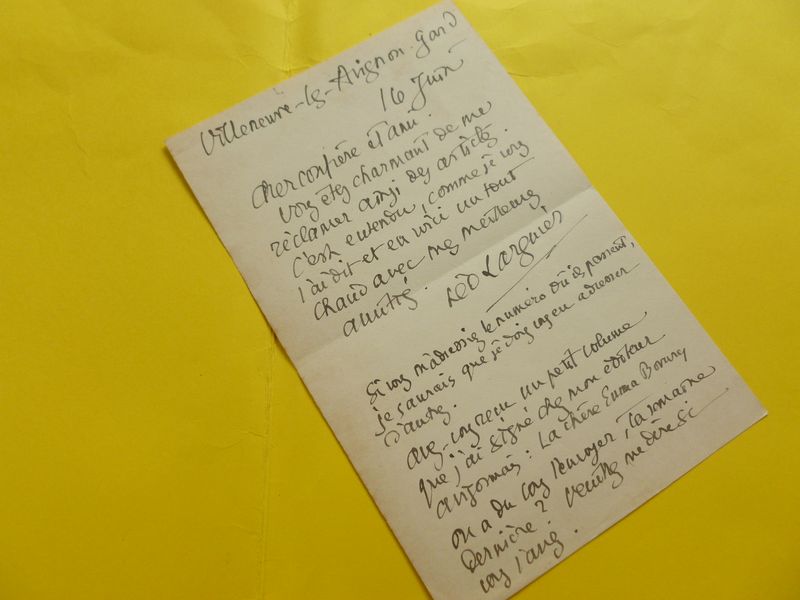 Villeneuve-ls-Avignon. Gard
16 Juin
Cher confrère et ami.
Vous êtes charmant de me
réclamer ainsi des articles.
C'est entendu, comme je vous
l'ai dit et en voici un tout
chaud avec mes meilleures
amitiés.
Léo Larguier
Si vous m'adressiez le numéro où ils passent,
je saurais que je dois vous en adresser
d'autres.
avez-vous reçu un petit volume
que j'ai signé chez mon éditeur
: La chère Emma Bovary
on a dû vous l'envoyer, la semaine
dernière ? Veuillez me dire si
vous l'avez.